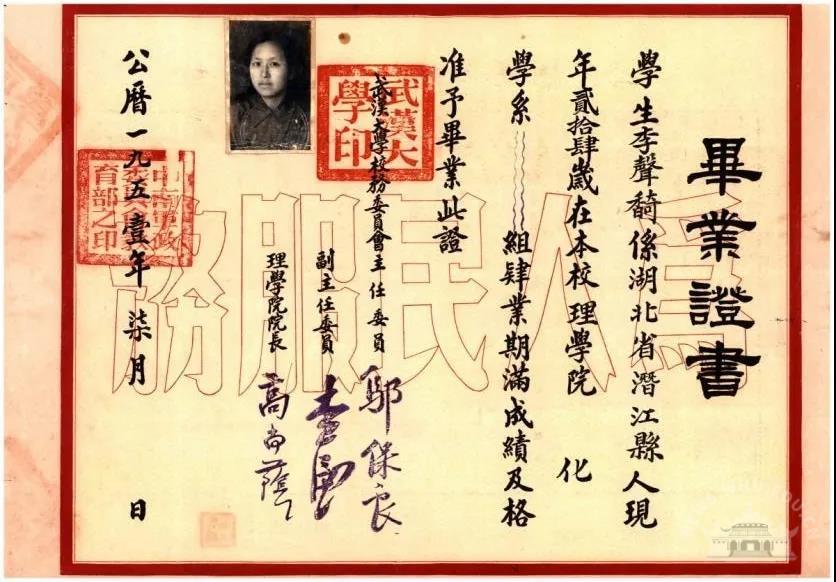 畢業證書
學生李聲係湖北省潛江縣人現
年貳拾肆歲在本校理學院 化
學系 組肄業期滿成績及格
准予畢業此證
武漢大學校務委員會主任委員 鄔保良
副主任委員
理學院院長 高尚蔭
公曆一九五壹年柒月 日
爲人民服務
武漢大
學印
育部之印